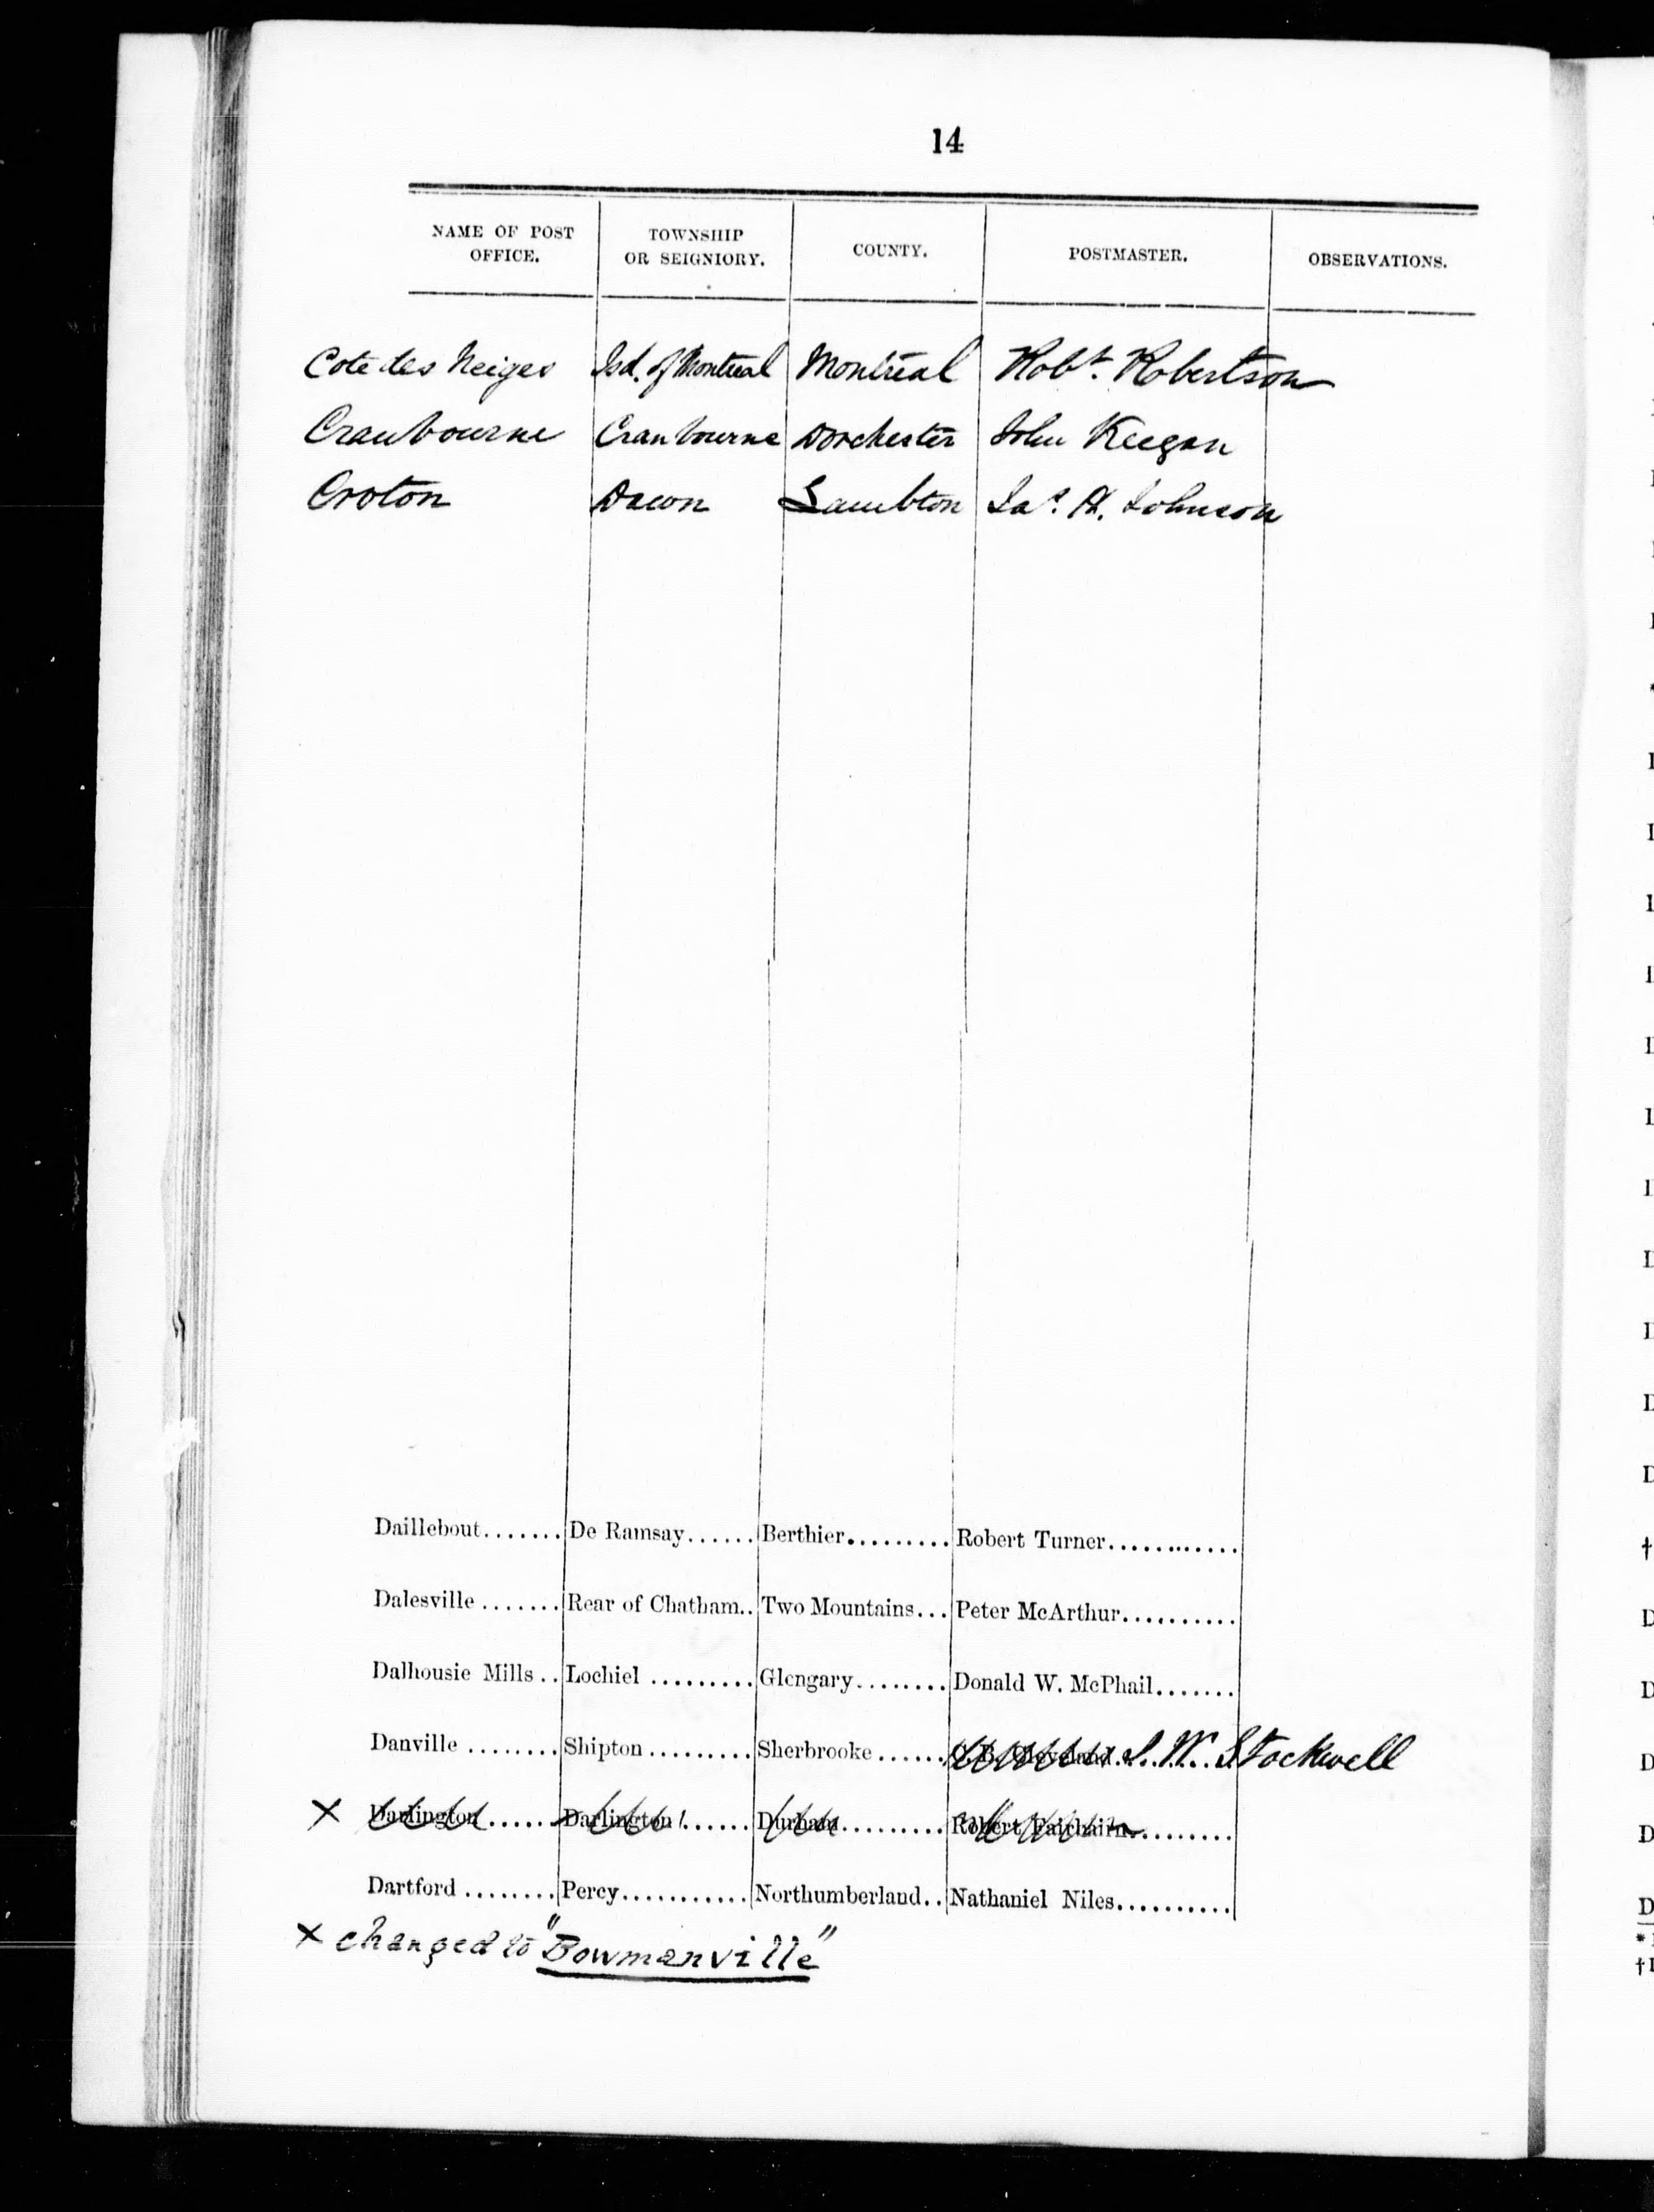 14
NAME OF POST OFFICE. TOWNSHIP OR SEIGNIORY. COUNTY. POSTMASTER. OBSERVATIONS.
Cote des Neiges Isd. of Montreal Montreal Robt. Robertson
Cranbourne Cranbourne Dorchester John Keegan
Croton Dawn Lambton Jas. H. Johnson
Daillebout....... De Ramsay...... Berthier......... Robert Turner............
Dalesville ....... Rear of Chatham.. Two Mountains... Peter McArthur..........
Dalhousie Mills.. Lochiel ......... Glengary........ Donald W. McPhail.......
Danville ........ Shipton ......... Sherbrooke ...... C. B. Cleveland W. Stockwell
X Darlington...... Darlington ...... Durham......... Robert Fairbairn.........
Dartford ........ Percy........... Northumberland.. Nathaniel Niles..........
X changed to "Bowmanville"